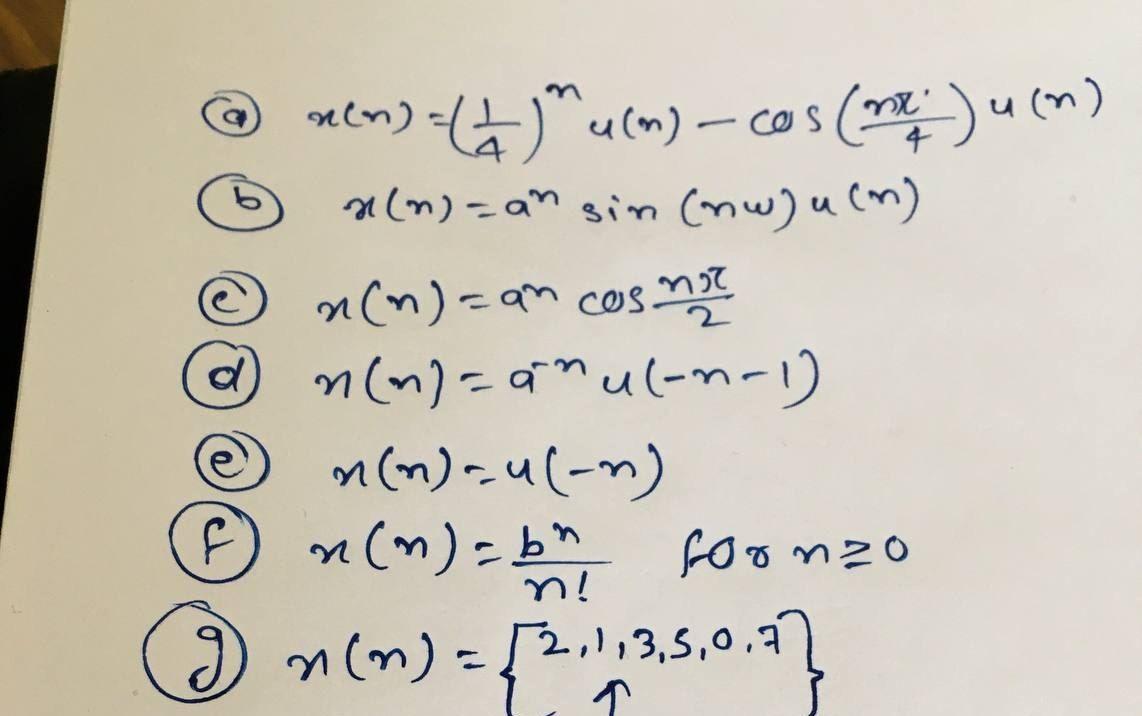 (a) x(n) = (1/4)^n u(n) - cos(nπ/4) u(n)
(b) x(n) = a^n sin (nω) u(n)
(c) x(n) = a^n cos nπ/2
(d) x(n) = a^-n u(-n-1)
(e) x(n) = u(-n)
(f) x(n) = b^n/n! for n ≥ 0
(g) x(n) = {2,1,3,5,0,7}
↑